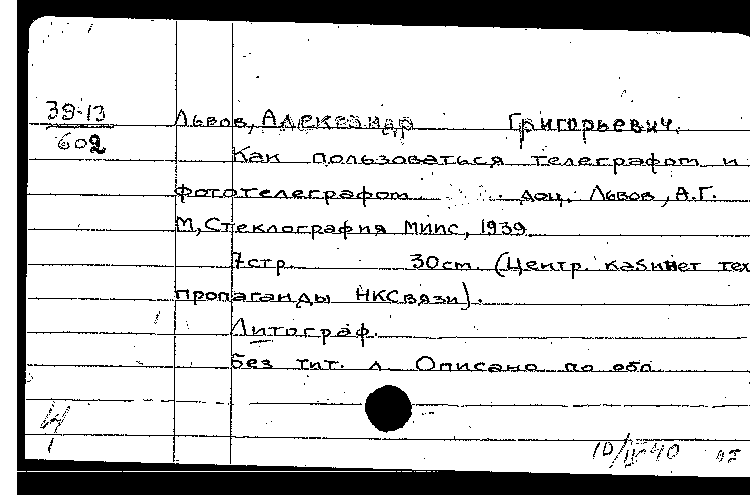 39-13
602
Львов, Александр Григорьевич.
Как пользоваться телеграфом и
фототелеграфом доц. Львов, А.Г.
М, Стеклография МИИС, 1939
7стр. 30cm. (Центр. кабинет тех
пропаганды НКСвязи).
Литограф.
Без тит. л Описано по обл.
10/IV 40